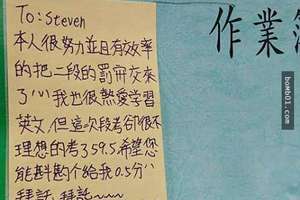 To: Steven
本人很努力並且有效率
的把二段的罰寫交來
了!!! 我也很熱愛學習
英文,但這次段考卻很不
理想的考了59.5,希望您
能斟酌個給我0.5分!!
拜託,拜託~~~
作業簿
bomb01.com